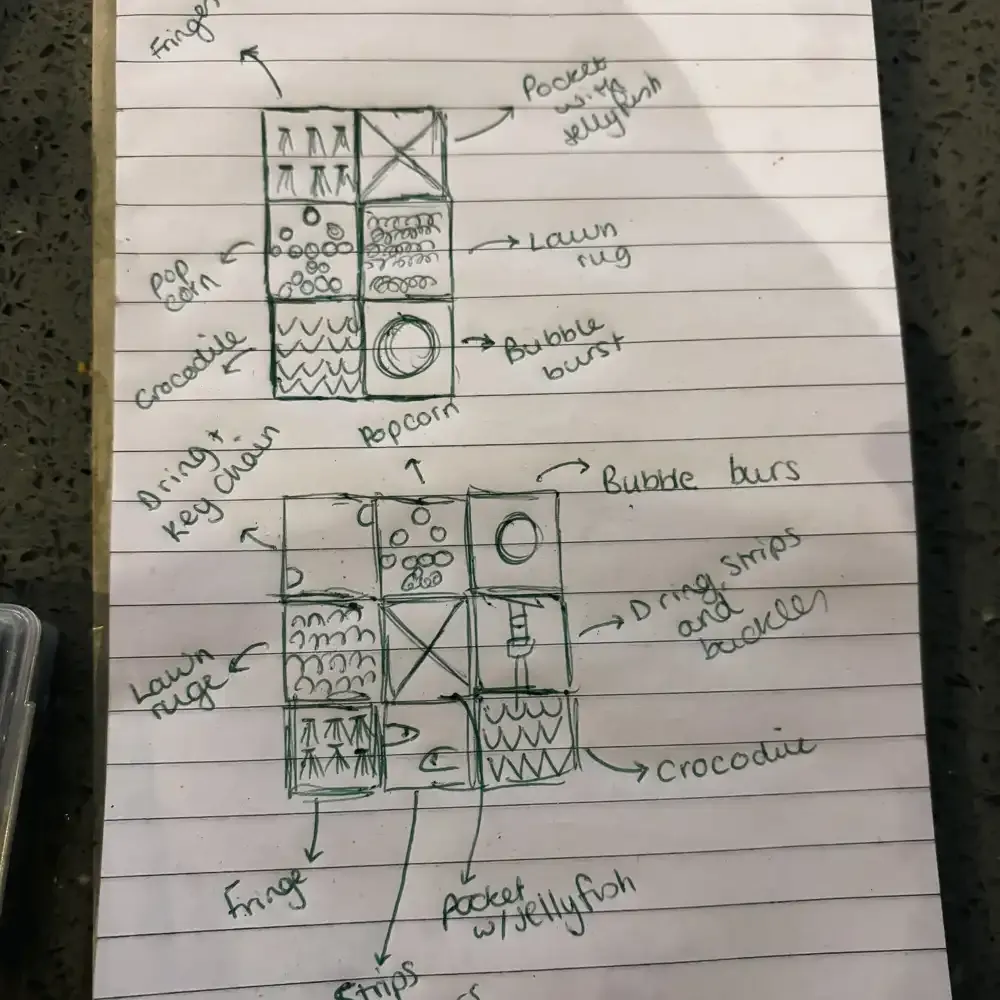 Fringes
Pocket
with
jellyfish
Lawn
rug
Pop
corn
Crocodile
Bubble
burst
Popcorn
D ring +
key chain
Bubble burs
D ring, strips
and
buckles
Lawn
ruge
Crocodile
Fringe
Pocket
w/jellyfish
Strips